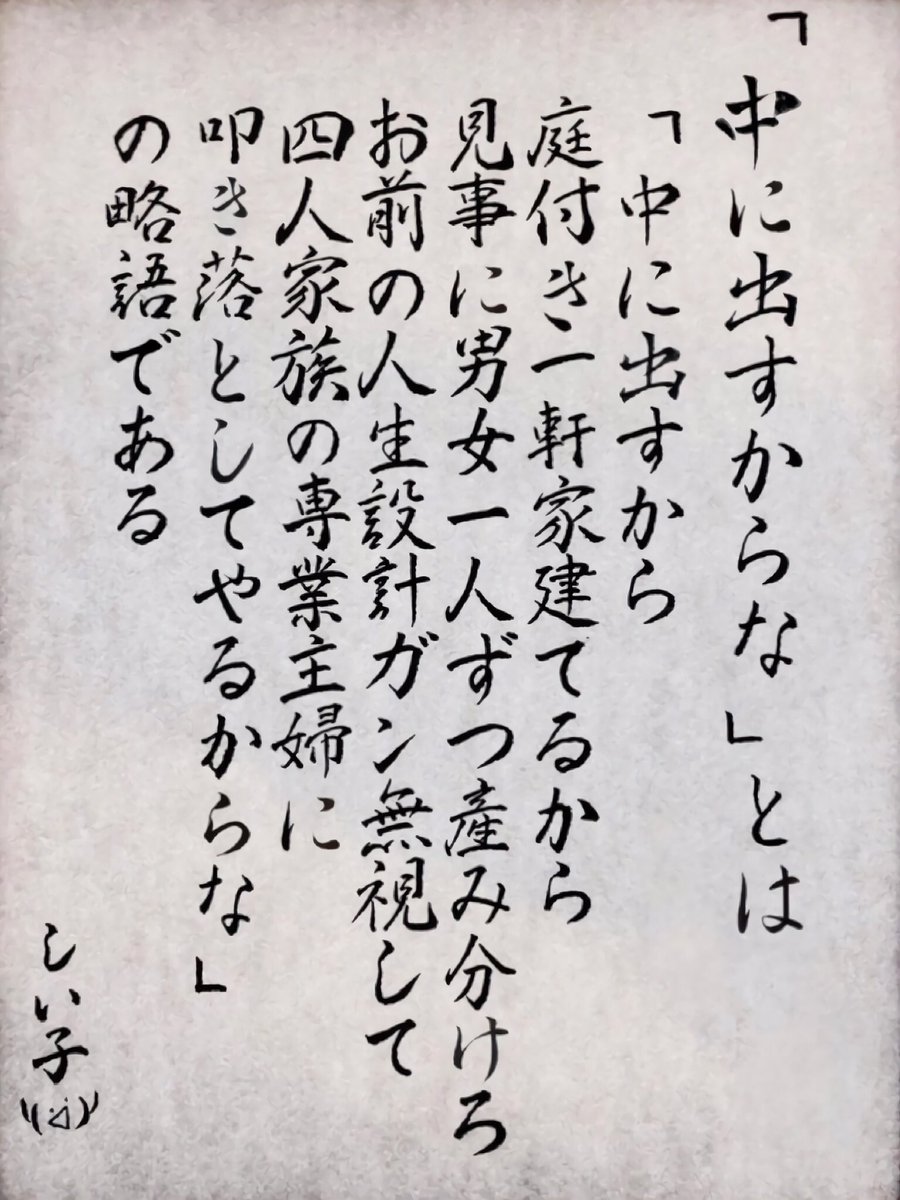 「中に出すからな」とは
「中に出すから
庭付き一軒家建てるから
見事に男女一人ずつ産み分けろ
お前の人生設計ガン無視して
四人家族の専業主婦に
叩き落としてやるからな」
の略語である
しい子